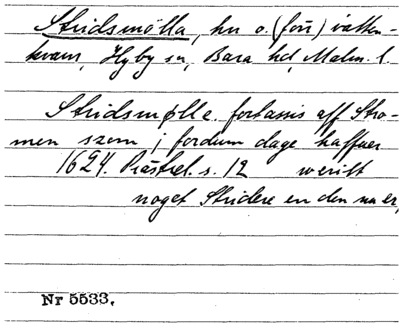 Stridsmölla, hn o. (förr) vatten-
kvarn, Hyby sn, Bara hd, Malm. l.
Stridsmølle fortassis aff Stro-
men szom i fordum dage haffuer
1624. Prästrel. s. 12 werit
noget Stridere en den nu er,
Nr 5533.